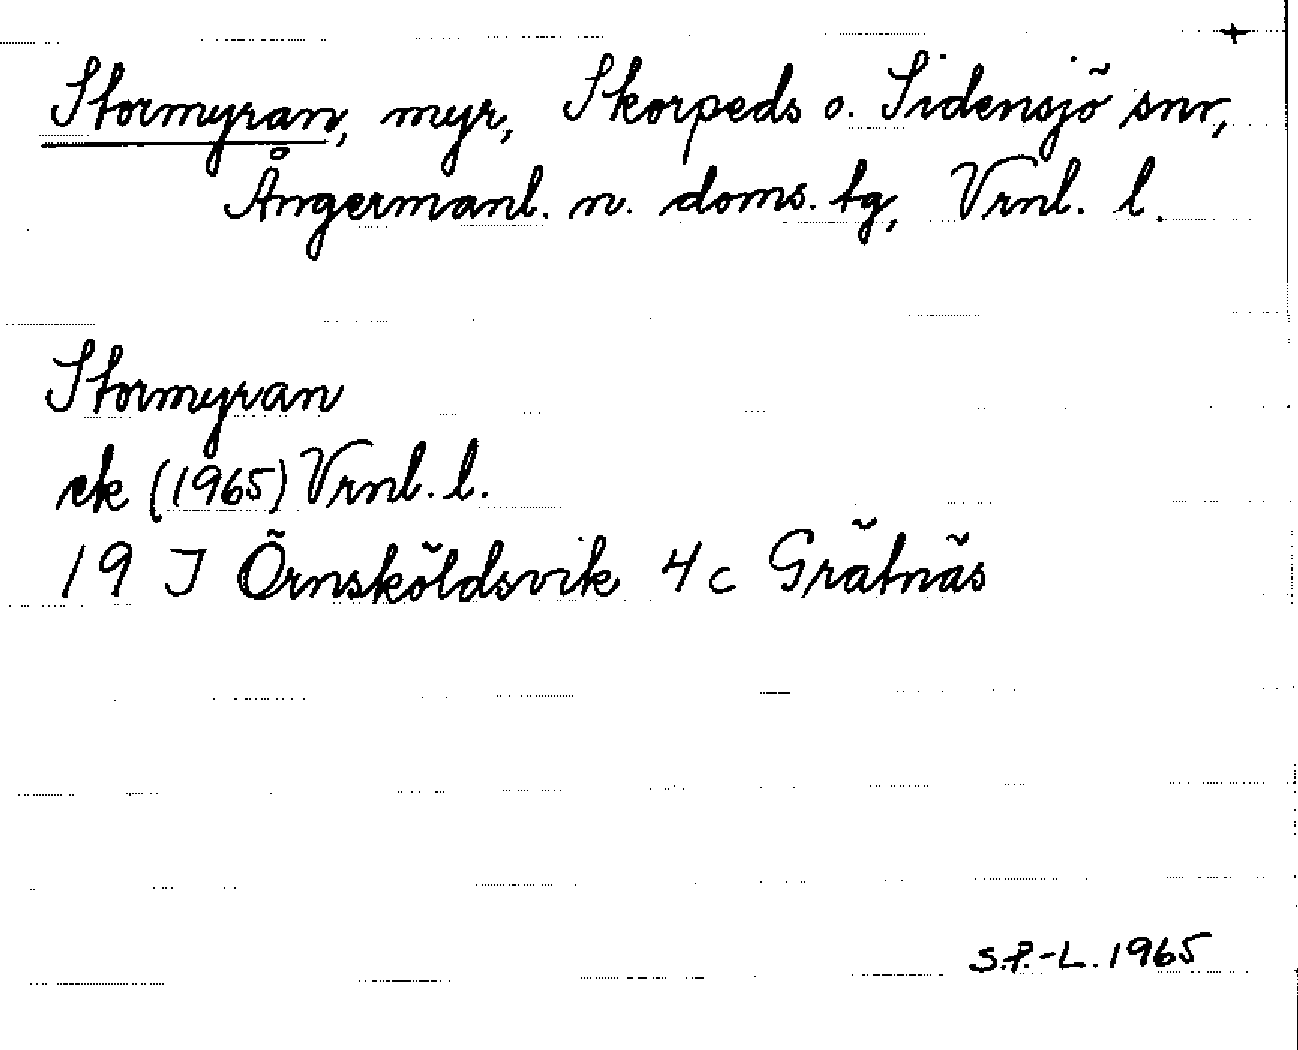 Stormyran, myr, Skorpeds o. Sidensjö snr,
Ångermanl. n. doms. tg, Vrnl. l.
Stormyran
ek (1965) Vrnl. l.
19 J Örnsköldsvik 4 c Grätnäs
S.P.-L. 1965